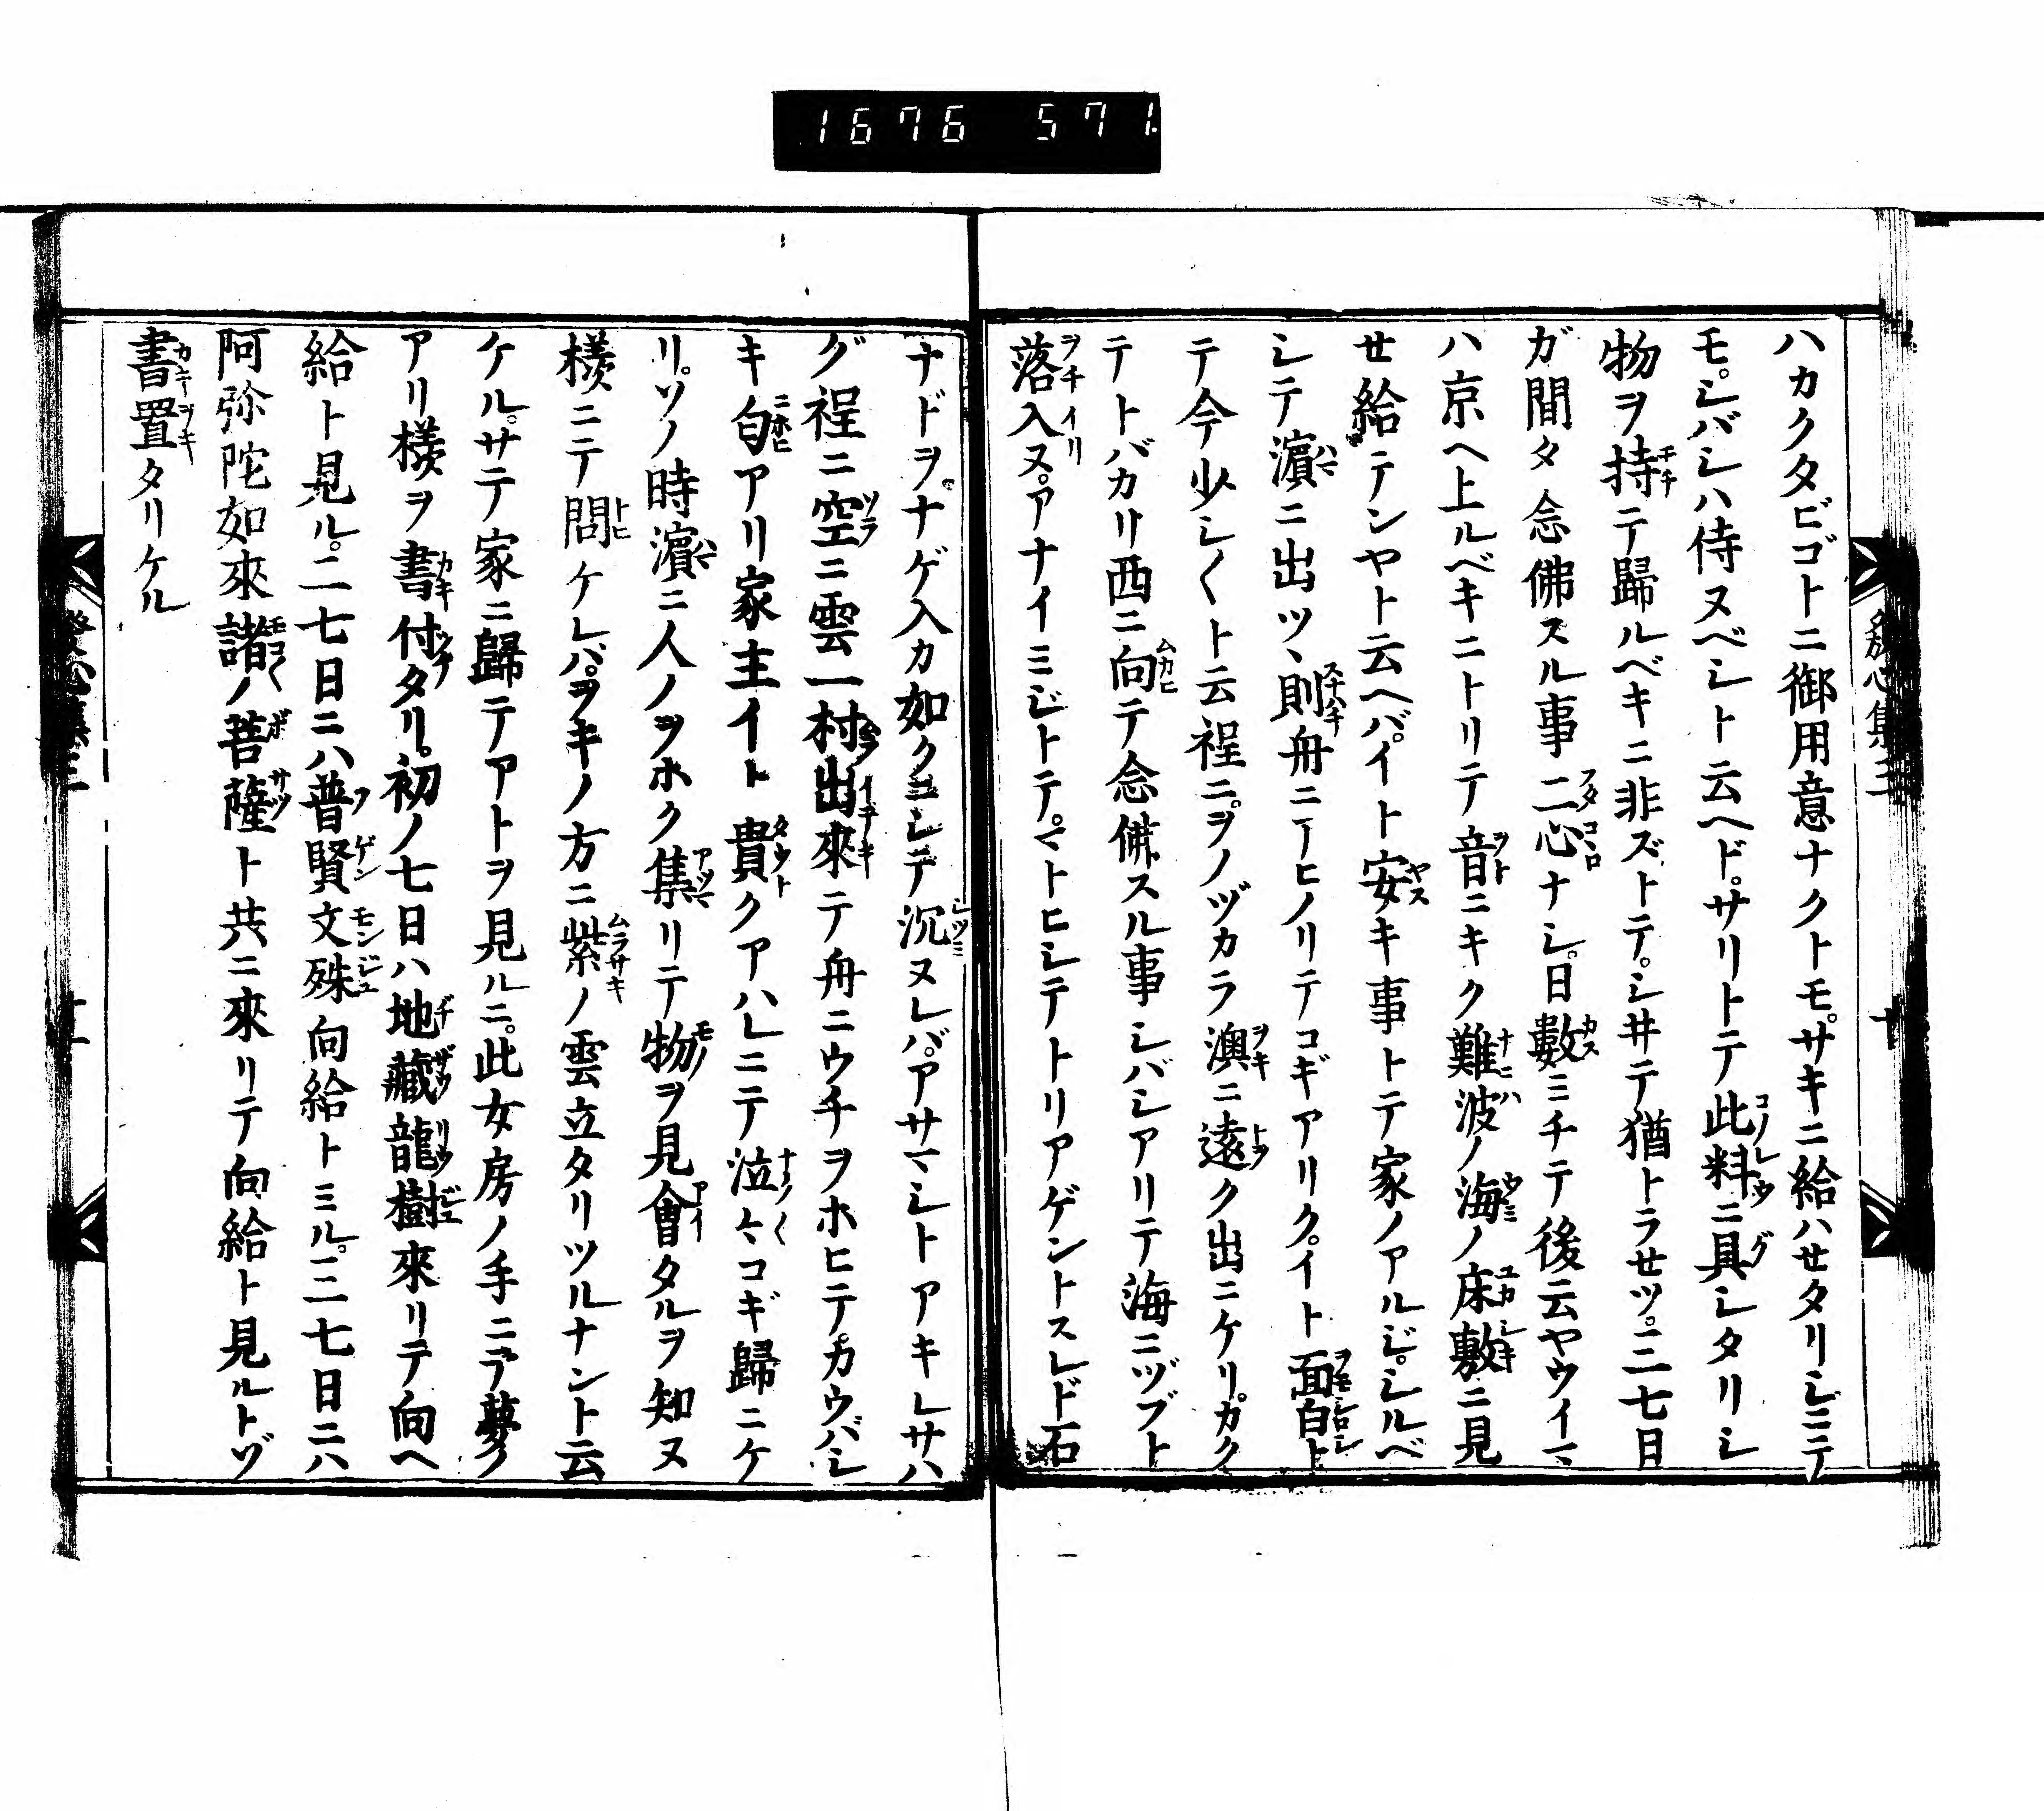 1676 571.
發心集三
十
ハカクタビゴトニ御用意ナクトモ。サキニ給ハセタリシニテ
モ。シバシハ侍ヌベシト云ヘド。サリトテ此料ニ具シタリシ
物ヲ持テ歸ルベキニ非ズトテ。シ井テ猶トラセツ。二七日
ガ間タ念佛スル事二心ナシ。日數ミチテ後云ヤウイマ
ハ京ヘ上ルベキニトリテ音ニキク難波ノ海ノ床敷ニ見
せ給テンヤト云ヘバ。イト安キ事トテ家ノアルジ。シルベ
シテ濱ニ出ツヽ則舟ニアヒノリテコギアリク。イト面白ト
テ今少シ〱ト云程ニ。ヲノヅカラ澳ニ遠ク出ニケリ。カク
テトバカリ西ニ向テ念佛スル事シバシアリテ海ニヅブト
落入ヌ。アナイミジトテ。マトヒシテトリアゲントスレド石
ナドヲナゲ入カ如クシテ沉ヌレバ。アサマシトアキレサハ
グ程ニ空ニ雲一村出來テ舟ニウチヲホヒテ。カウバシ
キ匂アリ家主イト貴クアハレニテ泣〻コギ歸ニケ
リ。ソノ時濱ニ人ノヲホク集リテ物ヲ見會タルヲ知ヌ
樣ニテ問ケレバ。ヲキノ方ニ紫ノ雲立タリツルナント云
ケル。サテ家ニ歸テアトヲ見ルニ。此女房ノ手ニテ夢ノ
アリ樣ヲ書付タリ。初ノ七日ハ地藏龍樹來リテ向ヘ
給ト見ル。二七日ニハ普賢文殊向給トミル。三七日ニハ
阿弥陀如來諸ノ菩薩ト共ニ來リテ向給ト見ルトゾ
書置タリケル
發心集三